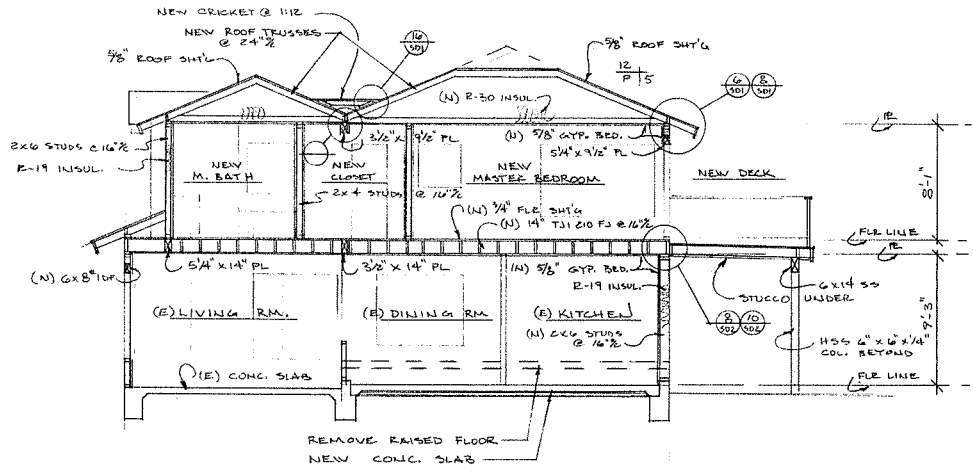 NEW CRICKET @ 1:12
NEW ROOF TRUSSES
@ 24" o/c
5/8" ROOF SHT'G
16
SD1
5/8" ROOF SHT'G
12
P 5
6
SD1
8
SD1
(N) R-30 INSUL.
2x6 STUDS @ 16" o/c
R-19 INSUL.
3 1/2" x 9 1/2" PL
(N) 5/8" GYP. BRD.
5 1/4" x 9 1/2" PL
PL
NEW
M. BATH
NEW
CLOSET
NEW
MASTER BEDROOM
NEW DECK
2x4 STUDS @ 16" o/c
8'-1"
(N) 3/4" FLR SHT'G
(N) 14" TJI 210 FJ @ 16" o/c
FLR LINE
PL
(N) 6x8 #1DF
5 1/4" x 14" PL
3 1/2" x 14" PL
(N) 5/8" GYP. BRD.
R-19 INSUL.
STUCCO UNDER
6x14 SS
(E) LIVING RM.
(E) DINING RM
(E) KITCHEN
(N) 2x6 STUDS
@ 16" o/c
8
SD2
10
SD2
HSS 6" x 6" x 1/4"
COL. BEYOND
9'-3"
(E) CONC. SLAB
FLR LINE
REMOVE RAISED FLOOR
NEW CONC. SLAB